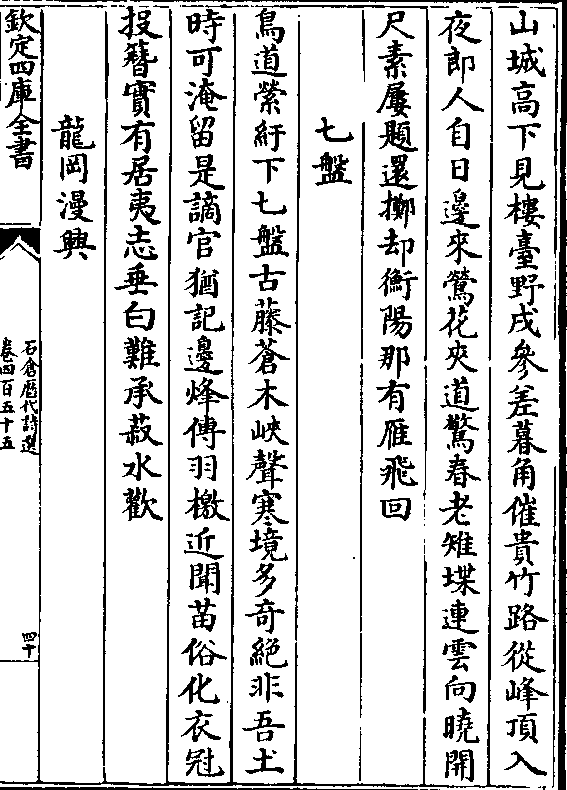 山城高下見樓臺野戍參差暮角催貴竹路從峰頂入
夜郎人自日邊來鶯花夾道驚春老雉堞連雲向曉開
尺素屢題還擲却衡陽那有雁飛回
七盤
鳥道縈紆下七盤古藤蒼木峽聲寒境多奇絶非吾土
時可淹留是謫官猶記邊烽傳羽檄近聞苗俗化衣冠
投簮實有居夷志垂白難承菽水歡
龍岡漫興
欽定四庫全書
石倉歷代詩選
卷四百五十五
四十